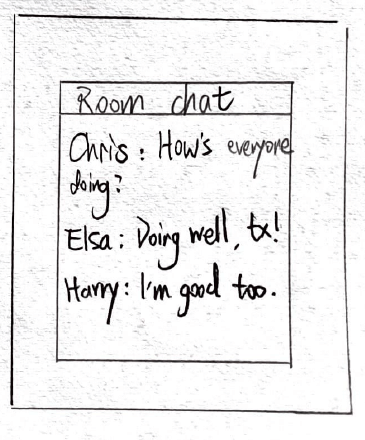 Room chat
Chris: How's everyone
doing?
Elsa: Doing well, tx!
Harry: I'm good too.